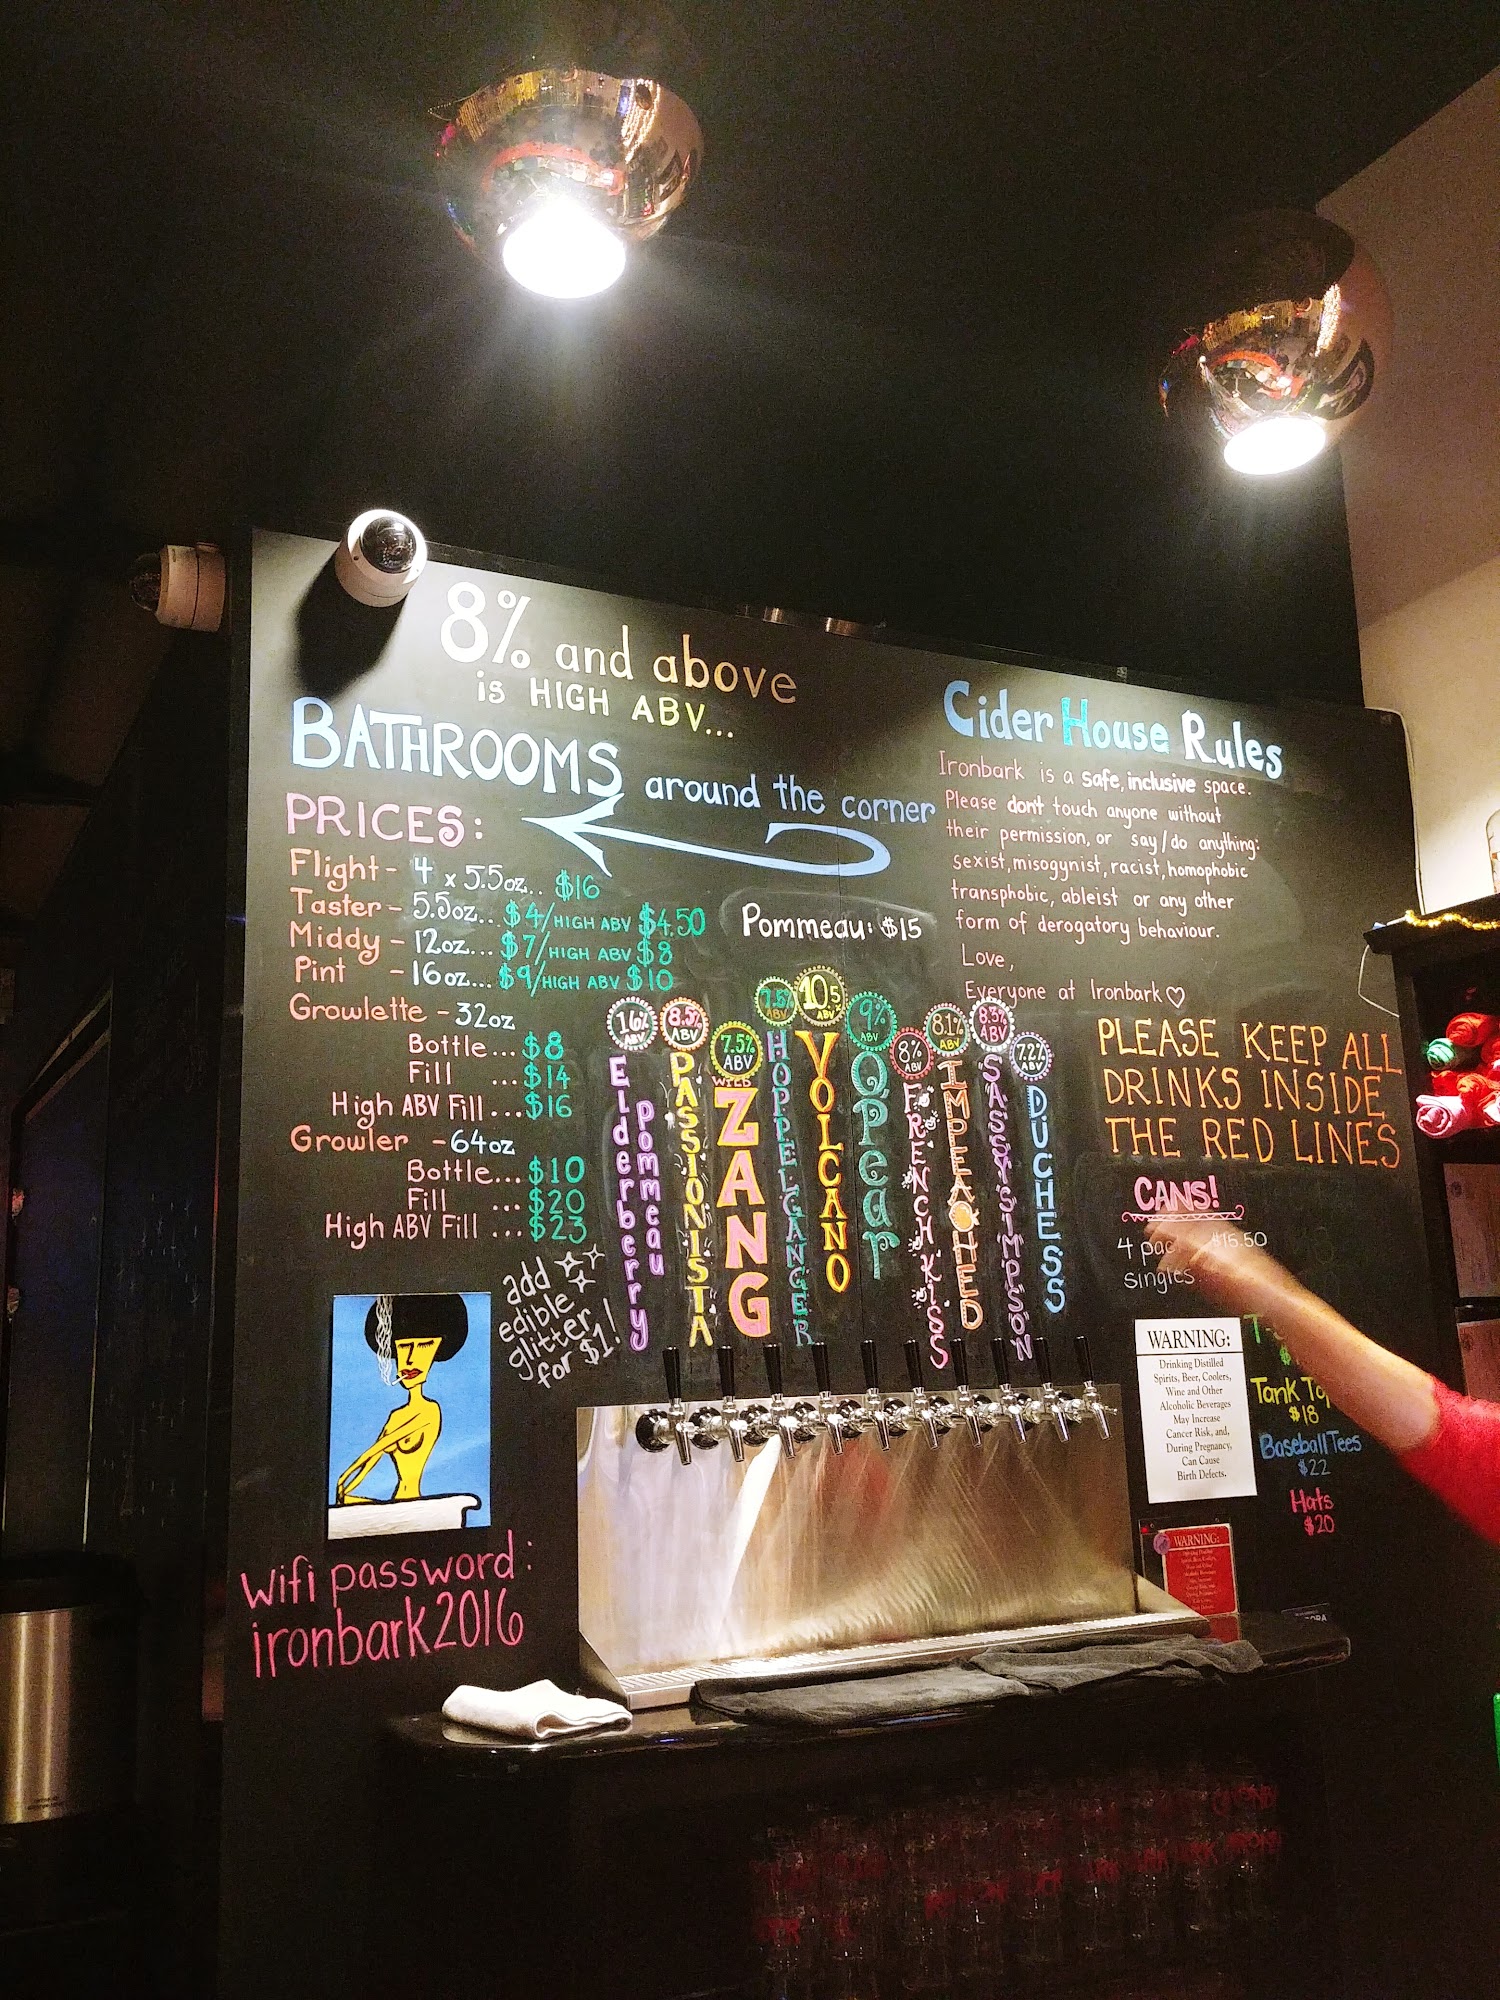 8% and above
is HIGH ABV...
BATHROOMS around the corner
PRICES:
Flight - 4 x 5.5oz... $16
Taster - 5.5oz... $4/HIGH ABV $4.50
Middy - 12oz... $7/HIGH ABV $8
Pint - 16oz... $9/HIGH ABV $10
Growlette - 32oz
Bottle... $8
Fill ... $14
High ABV Fill... $16
Growler - 64oz
Bottle... $10
Fill ... $20
High ABV Fill ... $23
add
edible
glitter
for $1!
Wifi password:
ironbark2016
Pommeau: $15
16% ABV
Elderberry
Pommeau
8.5% ABV
PASSIONISTA
7.5% ABV
WILD
ZANG
7.6% ABV
HOPPELGANGER
10.5 ABV
VOLCANO
9% ABV
QPear
8% ABV
FRENCH KISS
8.1% ABV
IMPEACHED
8.3% ABV
SASSY SIMPSON
7.2% ABV
DUCHESS
Cider House Rules
Ironbark is a safe, inclusive space.
Please don't touch anyone without
their permission, or say/do anything:
sexist, misogynist, racist, homophobic
transphobic, ableist or any other
form of derogatory behaviour.
Love,
Everyone at Ironbark♡
PLEASE KEEP ALL
DRINKS INSIDE
THE RED LINES
CANS!
4 $15.50
singles
WARNING:
Drinking Distilled
Spirits, Beer, Coolers,
Wine and Other
Alcoholic Beverages
May Increase
Cancer Risk, and,
During Pregnancy,
Can Cause
Birth Defects.
Tank
$18
Baseball Tees
$22
Hats
$20
WARNING: